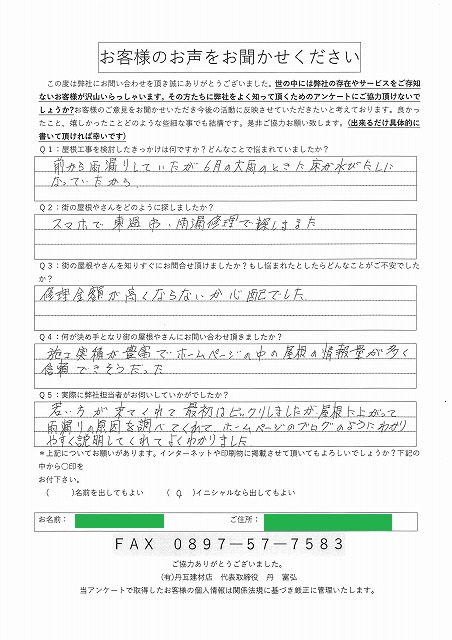 お客様のお声をお聞かせください
この度は弊社にお問い合わせを頂き誠にありがとうございました。世の中には弊社の存在やサービスをご存知
ないお客様が沢山いらっしゃいます。その方たちに弊社をよく知って頂くためのアンケートにご協力頂けないで
しょうか?お客様のご意見をお聞かせいただき今後の活動に反映させていただきたいと考えております。良かっ
たこと、嬉しかったことどのような些細な事でも結構です。是非ご協力お願い致します。(出来るだけ具体的に
書いて頂ければ幸いです)
Q１：屋根工事を検討したきっかけは何ですか？どんなことで悩まれていましたか？
前から雨漏りしていたが 6月の大雨のときた 床が水びたしに
なっていたから
Q２：街の屋根やさんをどのように探しましたか？
スマホで 東温市、雨漏修理で探しました
Q３：街の屋根やさんを知りすぐにお問合せ頂けましたか？もし悩まれたとしたらどんなことがご不安でした
か？
修理金額が高くならないか心配でした
Q４：何が決め手となり街の屋根やさんにお問い合わせ頂きましたか？
施工実績が豊富でホームページの中の屋根の情報量が多く
信頼できそうだった
Q５：実際に弊社担当者がお伺いしていかがでしたか？
若い方が来てくれて最初はビックリしましたが屋根に上がって
雨漏りの原因を調べてくれて ホームページのブログのようにわかり
やすく説明してくれてよくわかりました
＊上記についてお願いがあります。インターネットや印刷物に掲載させて頂いてもよろしいでしょうか？下記の
中から〇印を
お付下さい。
(　　)名前を出してもよい　　(○)イニシャルなら出してもよい
お名前：　　ご住所：
FAX 0897ー57ー7583
ご協力ありがとうございました。
(有)丹瓦建材店　代表取締役　丹　富弘
当アンケートで取得したお客様の個人情報は関係法規に基づき厳正に管理いたします。